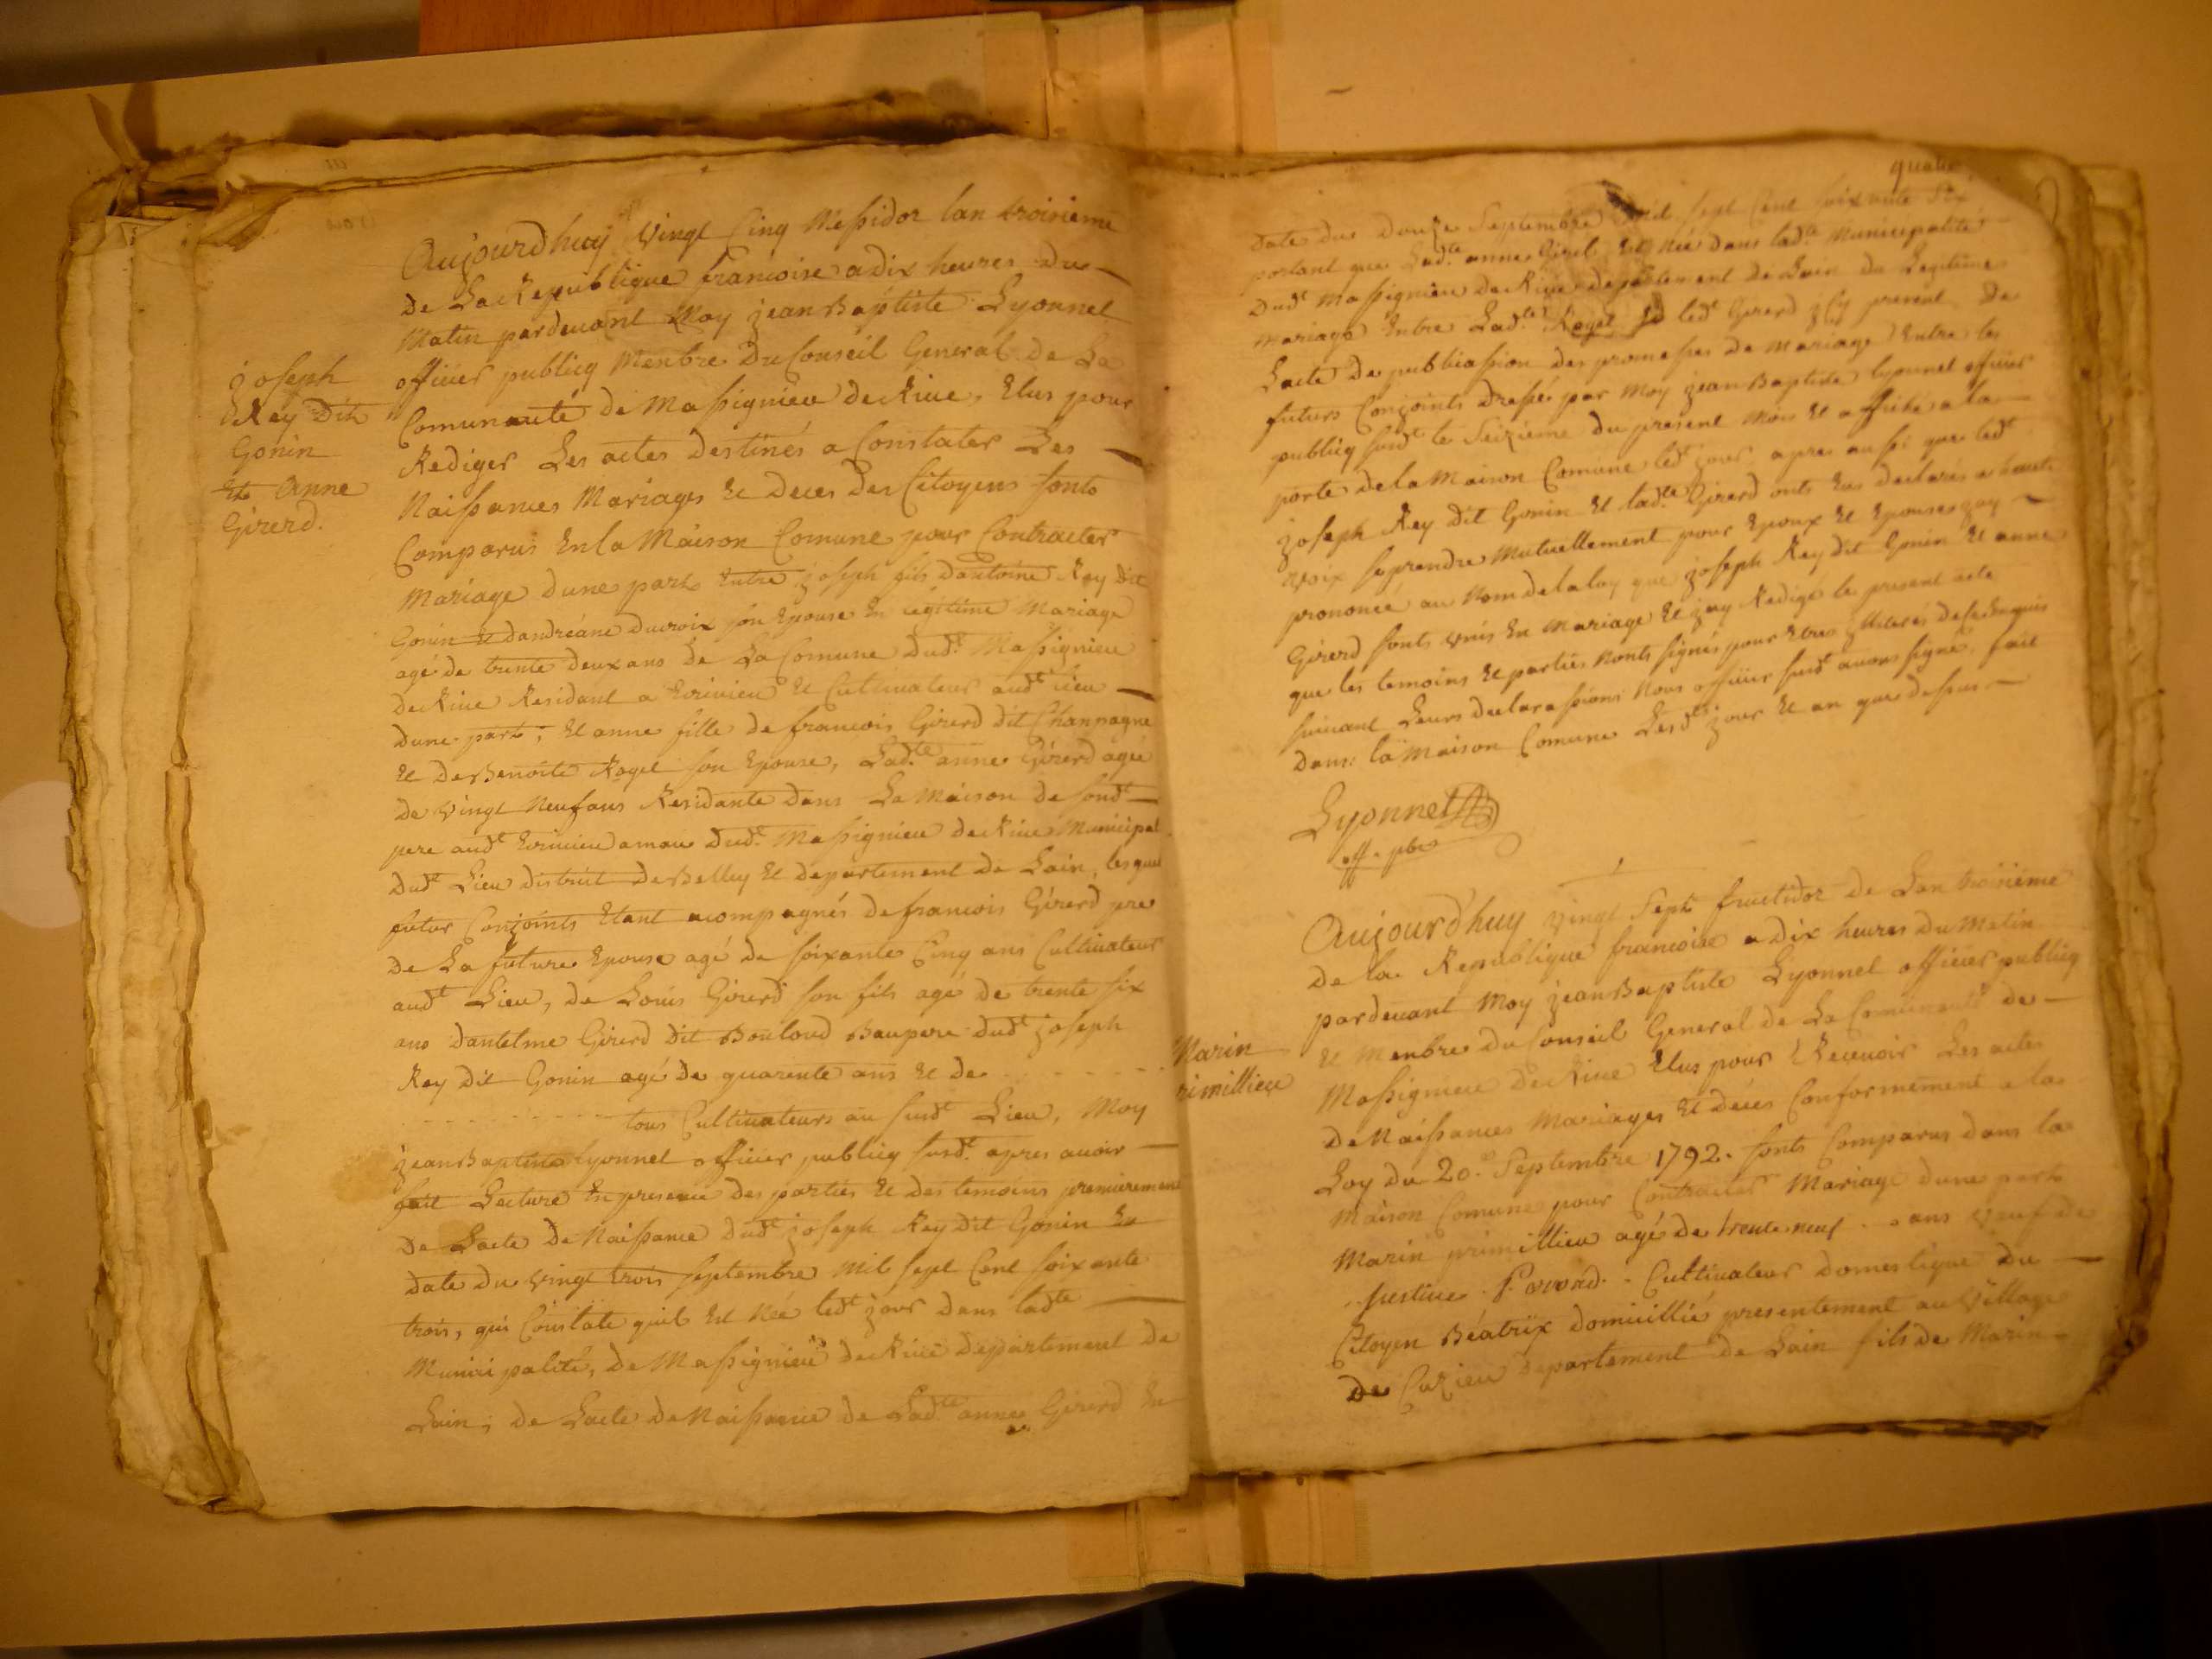 joseph
Rey dit
Gonin
Et Anne
Girerd.
Aujourdhuy vingt Cinq Messidor lan troisieme
de La Republique francoise a dix heures du
Matin pardevant Moy jean Baptiste Lyonnel
officier publicq Menbre Du Conseil General de La
Comunauté de Massignieu de Rive, Elus pour
Rediger Les actes destinés a Constater Les
Naissances Mariages Et deces des Citoyens sonts
Comparus En la Maison Comune pour Contracter
Mariage dune part Entre joseph fils dantoine Rey dit
Gonin Et dandréane ducroix son Epouse En légitime Mariage
agé de trente deux ans de La Comune dudt Massignieu
de Rive Residant a Et Cultivateur audt lieu
dune part; Et anne fille de francois Girerd dit Chanpagne
Et de Benoite Rogel son Epouse, Ladte anne Girerd agée
de vingt Neuf ans Residante dans La Maison de sondt
pere audt dudt Massignieu de Rive Municipal.
dudt Lieu district de Belley Et departement de Lain, lesquel
futur Conjoints Etant acompagnés de francois Girerd pere
de La future Epouse agé de soixante Cinq ans Cultivateur
audt Lieu, de Louis Girerd son fils agé de trente six
ans dantelme Girerd dit Bouloud Baupere dudt joseph
Rey dit Gonin agé de quarente ans Et de
tous Cultivateurs au susdt Lieu, Moy
jean Baptiste Lyonnel officier publicq susdt apres avoir
fait Lecture En presence des parties Et des temoins premierement
de Lacte de Naissance dudt joseph Rey dit Gonin En
date du vingt trois septembre Mil sept Cent soixante
trois, qui Constate quil Est Née ledt jour dans ladte
Municipalité, de Massignieu de Rive departement de
Lain, de Lacte de Naissance de Ladte anne Girerd En
quatre
date du douze Septembre Mil sept Cent soixante Six
portant que Ladte anne Girerd Est Née dans ladte Municipalité
dudt Massignieu de Rive departement de Lain du Legitime
mariage Entre Ladte Rogel Et ledt Girerd present de
Lacte de publicassion des promesses de Mariage Entre les
futurs Conjoints dressé par Moy jean Baptiste Lyonnel officier
publicq susdt le Seizieme du present Mois Et affiché a la
porte de la Maison Comune ledt jour apres aussi que ledt
joseph Rey dit Gonin Et ladte Girerd onts Eus declarés a haute
voix se prendre Mutuellement pour Epoux Et Epouses jay
prononcé au Nom de la loy que joseph Rey dit Gonin Et anne
Girerd sonts vnis En Mariage Et jay Redigé le present acte
que les temoins Et parties Nonts signés pour Etres de ce Enquis
suivant Leurs declarassions Nous officier susdt avons signé, fait
dans la Maison Comune Lesdt jour Et an que dessus
Lyonnel
off. pbs
Marin
rimillieu
Aujourd'huy vingt Sept fructidor de Lan troisieme
de la Republique francoise a dix heures du Matin
pardevant Moy jean Baptiste Lyonnel officier publicq
Et Menbre du Conseil General de La Comunauté de
Massignieu de Rive Elus pour Recevoir Les actes
de Naissances Mariages Et déces Conformement a la
Loy du 20. Septembre 1792. sonts Comparus dans la
Maison Comune pour Contracter Mariage dune part
Marin primillieu agé de trente neuf ans veuf de
justine . Cultivateur domestique du
Citoyen Béatrix domicillié presentement au Village
de Cuzieu departement de Lain fils de Marin